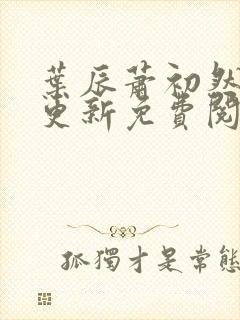 葉辰蕭初然
更新免費閱
孤獨才是常態